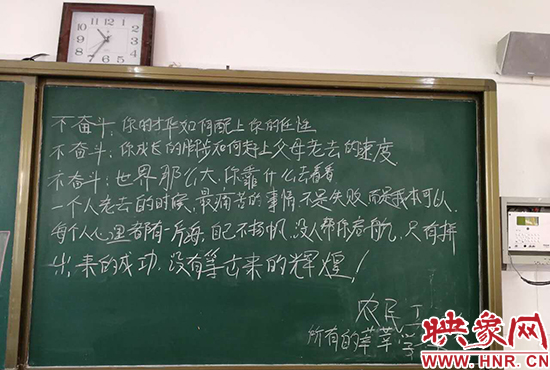 不奋斗,你的才华如何配上你的任性
不奋斗:你成长的脚步如何赶上父母老去的速度
不奋斗:世界那么大,你靠什么去看看
一个人老去的时候,最痛苦的事情不是失败,而是我本可以.
每个人心里都有一片海,自己不扬帆,没人帮你启航,只有拼
出来的成功,没有等出来的辉煌!
农民工
所有的莘莘学
映象网
WWW.HNR.CN